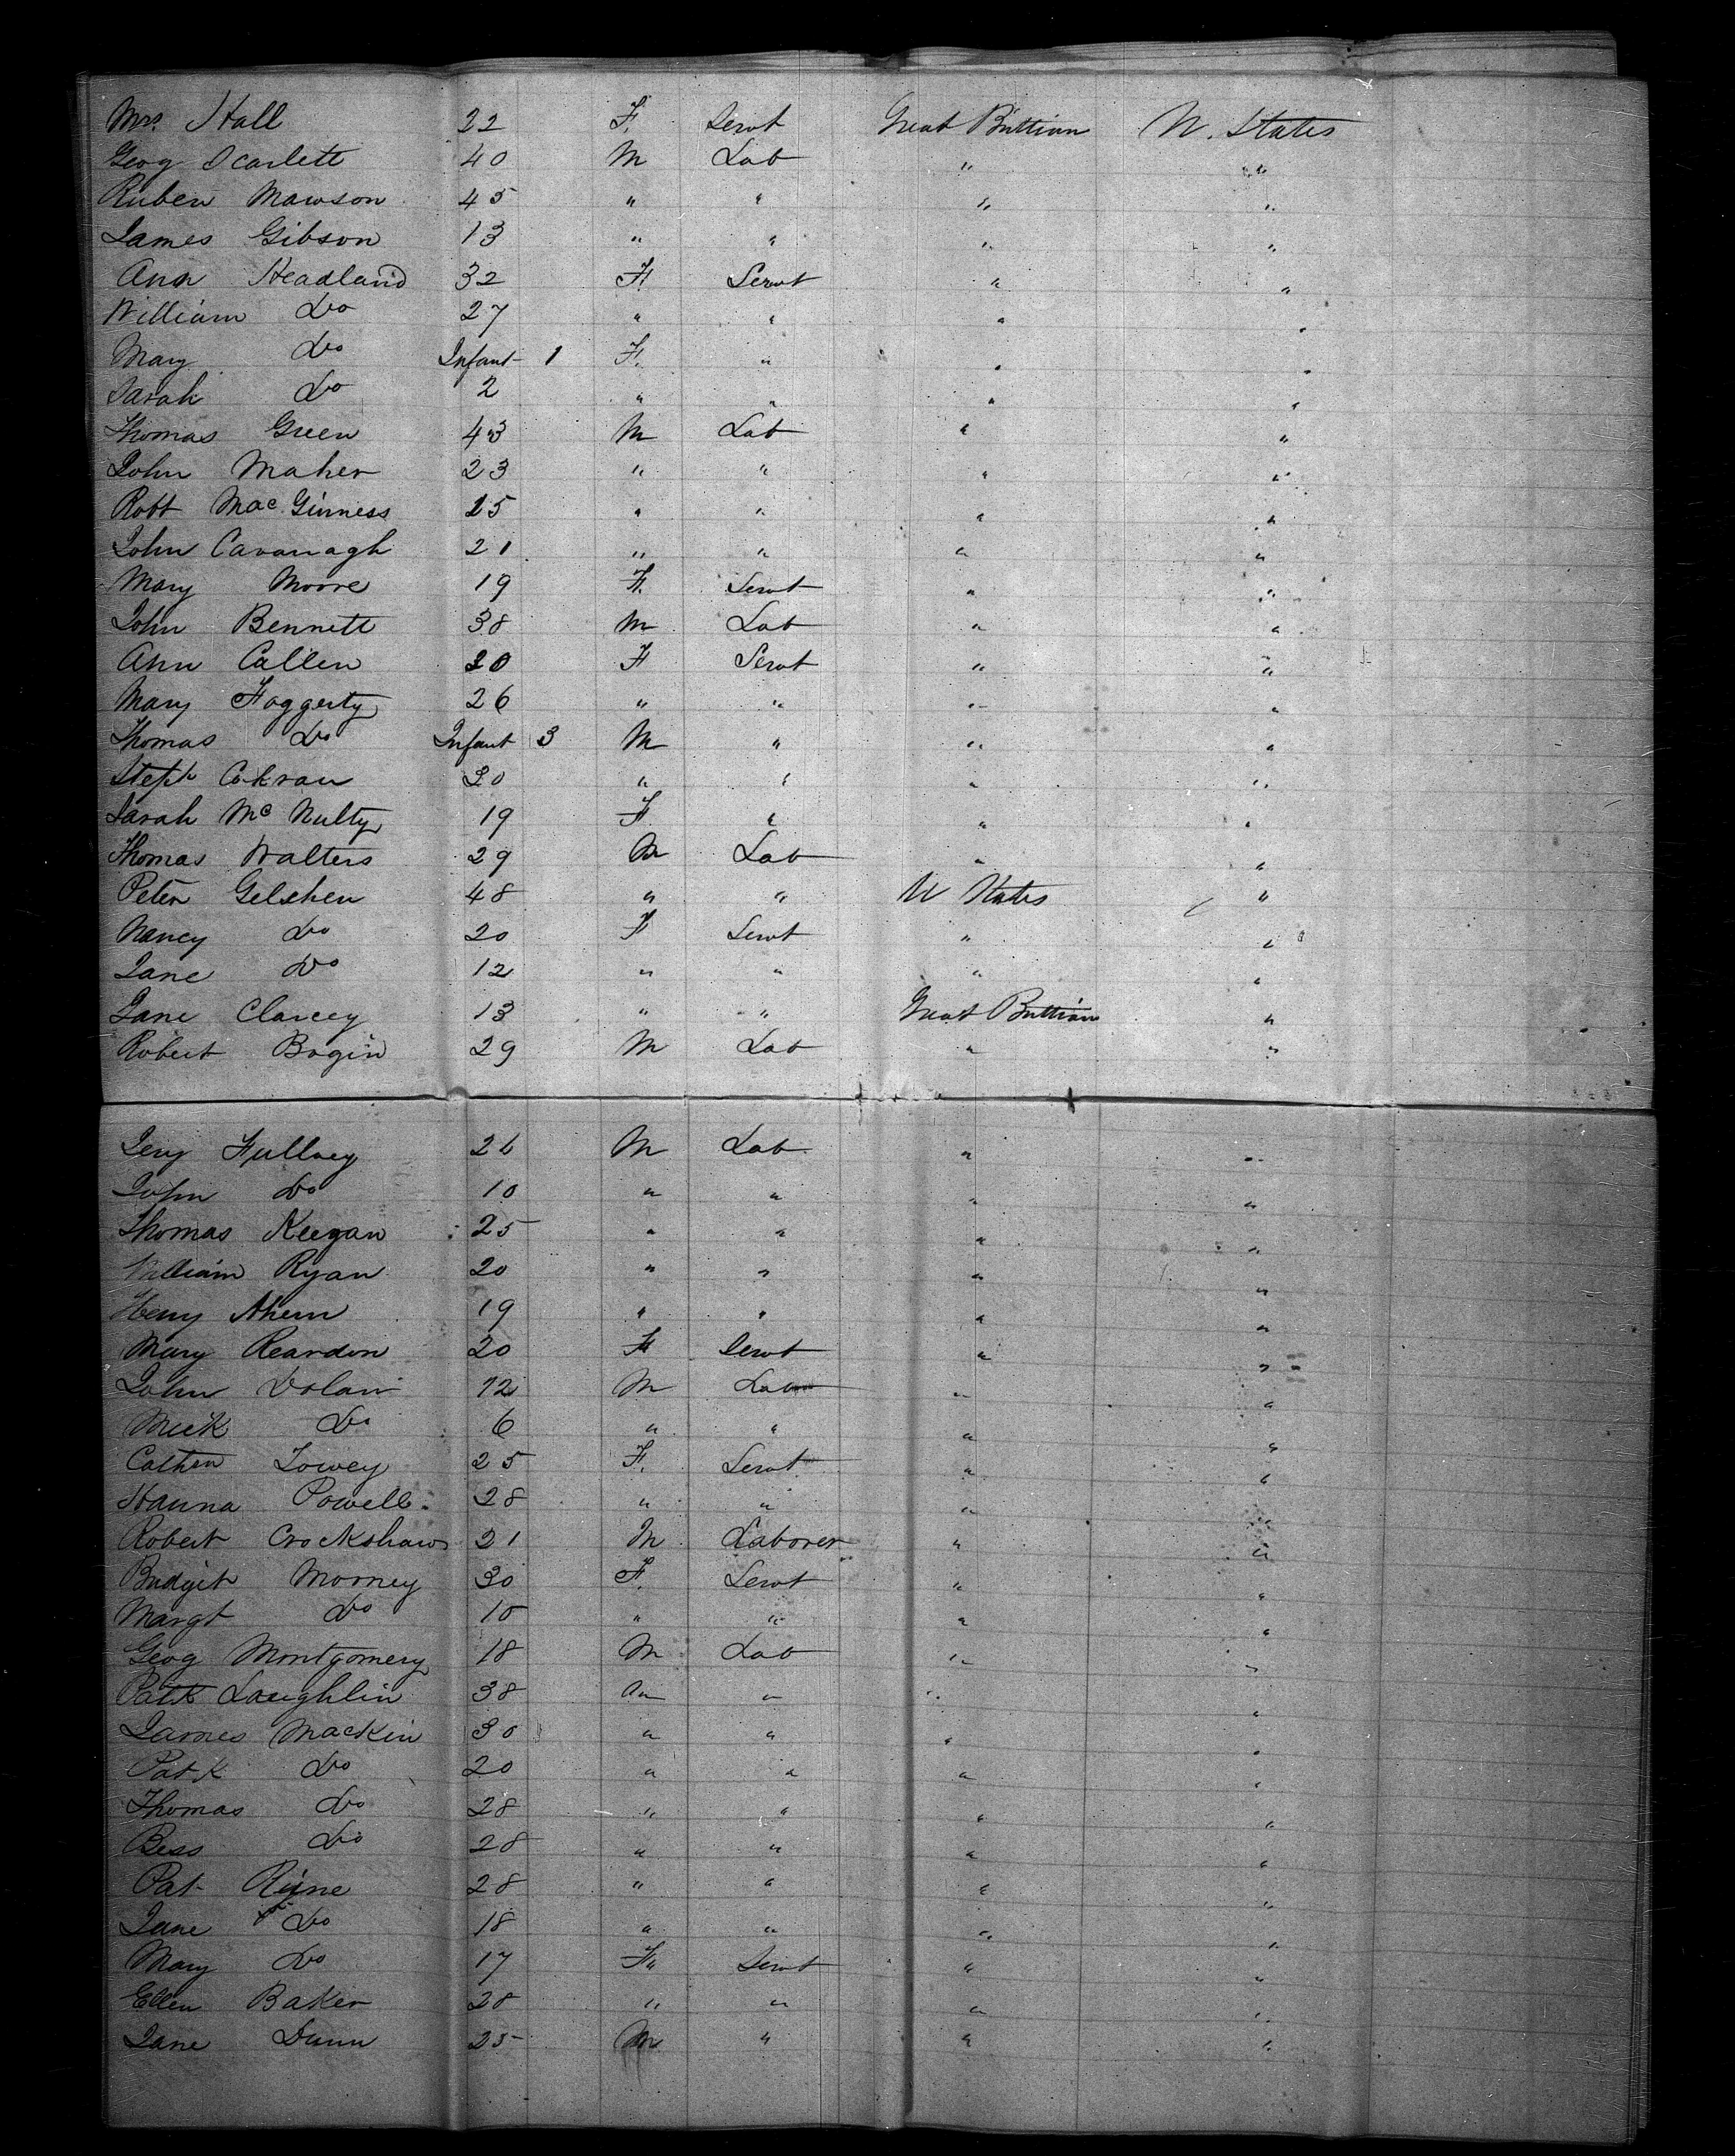 Mrs. Hall 22 F. Servt Great Brittian U. States
Geog Scarlett 40 M Lab " "
Ruben Mawson 45 " " " "
James Gibson 13 " " " "
Ann Headland 32 F. Servt " "
William Do 27 " " " "
Mary Do Infant 1 F. " " "
Sarah Do 2 " " " "
Thomas Green 43 M Lab " "
John Maher 23 " " " "
Robt Mac Ginness 25 " " " "
John Cavanagh 21 " " " "
Mary Moore 19 F. Servt " "
John Bennett 38 M Lab " "
Ann Callen 20 F Servt " "
Mary Foggerty 26 " " " "
Thomas Do Infant 3 M " " "
Steph Cokran 30 " " " "
Sarah Mc Nulty 19 F " " "
Thomas Walters 29 M Lab " "
Peter Gelshen 48 " " U States "
Nancy Do 20 F Servt " "
Jane Do 12 " " " "
Jane Clancey 13 " " Great Brittian "
Robert Bogin 29 M Lab " "
Jery Fullvey 26 M Lab " "
John Do 10 " " " "
Thomas Keegan 25 " " " "
William Ryan 20 " " " "
Henry Ahern 19 " " " "
Mary Reardon 20 F Servt " "
John Dolan 12 M Lab " "
Mick Do 6 " " " "
Cathrn Towey 25 F. Servt " "
Hanna Powell 28 " " " "
Robert Crockshaw 21 M Laborer " "
Bridget Morney 30 F. Servt " "
Margt Do 10 " " " "
Geog Montgomery 18 M Lab " "
Patk Laughlin 38 " " " "
James Mackin 30 " " " "
Patk Do 20 " " " "
Thomas Do 28 " " " "
Bess Do 28 " " " "
Pat Rijne 28 " " " "
Jane Do 18 " " " "
Mary Do 17 F" Servt " "
Ellen Baker 28 " " " "
Jane Dunn 25 M " " "